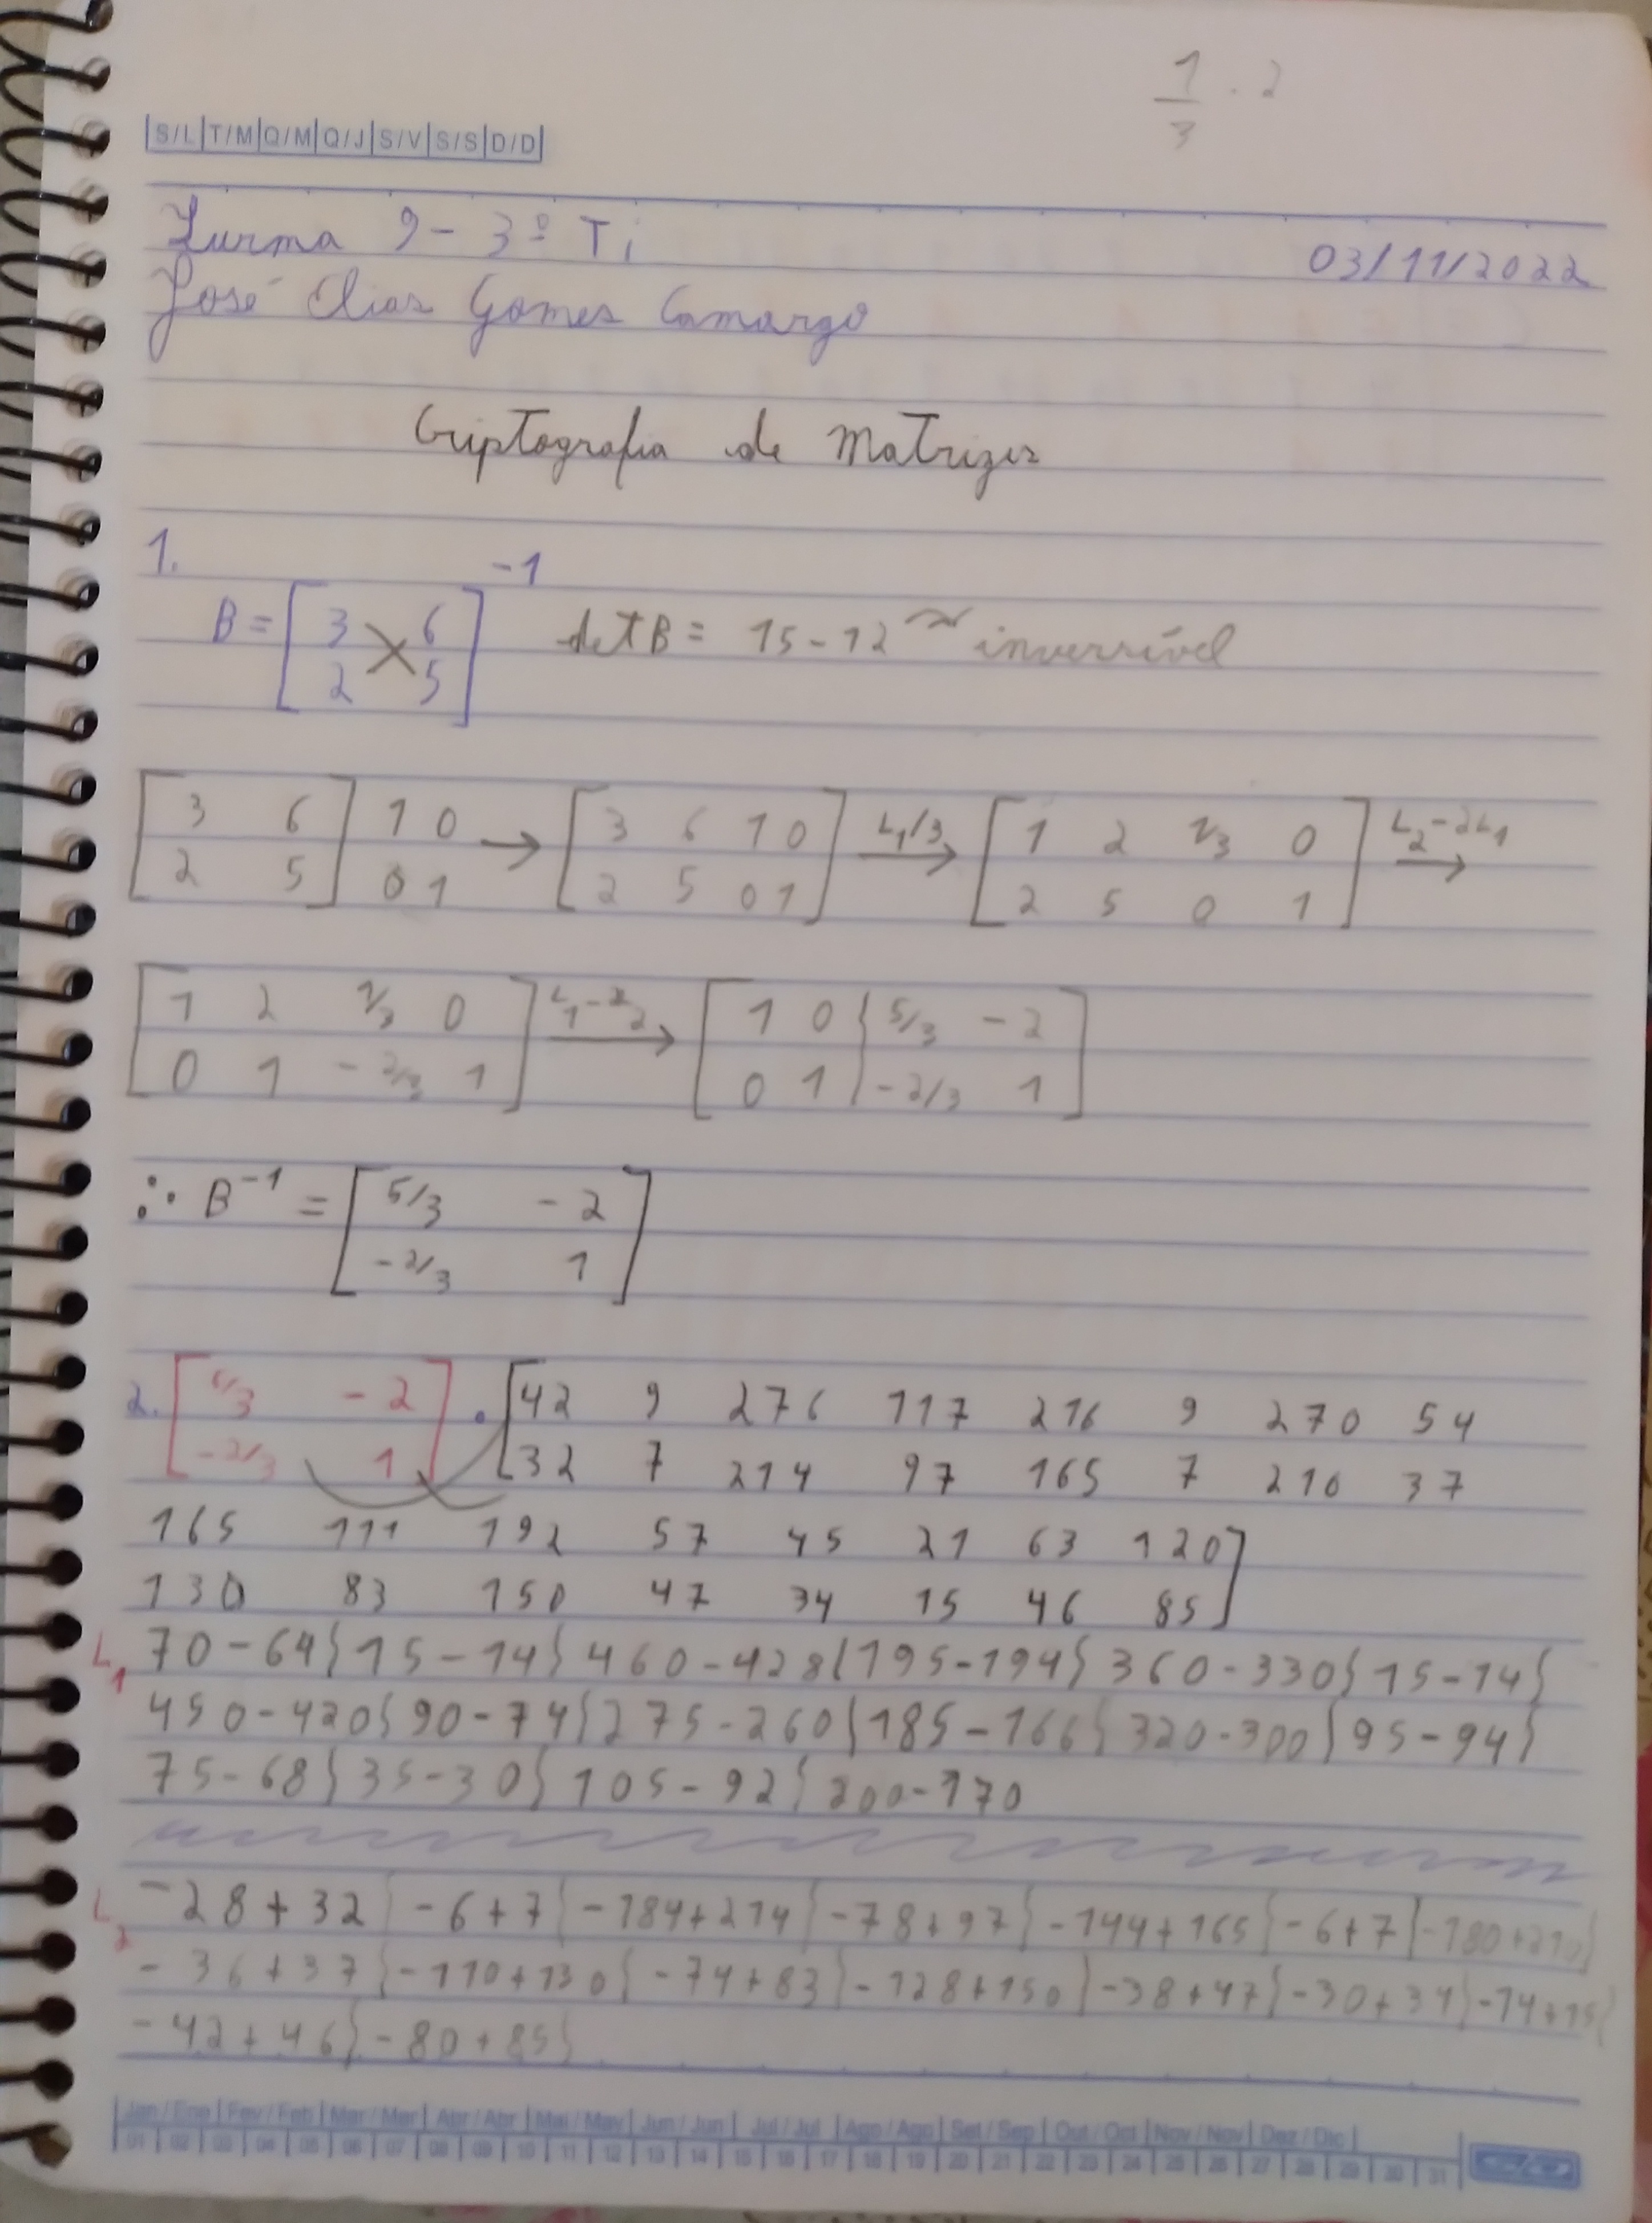 1/3 . 2
S/L T/M Q/M Q/J S/V S/S D/D
Turma 9 - 3º Ti
03/11/2022
José Elias Gomes Camargo
Criptografia de Matrizes
1.
B = [3 6; 2 5] -1 det B = 15 - 12 ~ inversível
[3 6; 2 5] 1 0; 0 1 → [3 6 1 0; 2 5 0 1] L1/3 → [1 2 1/3 0; 2 5 0 1] L2 - 2L1 →
[1 2 1/3 0; 0 1 -2/3 1] → [1 0 | 5/3 -2; 0 1 | -2/3 1]
∴ B⁻¹ = [5/3 -2; -2/3 1]
2. [5/3 -2; -2/3 1] . [42 9 276 117 216 9 270 54
32 7 214 97 165 7 210 37
165 111 192 57 45 21 63 120]
130 83 150 47 34 15 46 85]
L1 70-64 } 15-14 } 460-428 { 195-194 } 360-330 } 15-14 {
450-420 { 90-74 } 275-260 { 185-166 { 320-300 } 95-94 }
75-68 } 35-30 } 105-92 { 200-170
L2 -28+32 | -6+7 { -184+214 } -78+97 } -144+165 { -6+7 } -180+210 }
-36+37 { -110+130 { -74+83 } -128+150 } -38+47 { -30+34 } -14+15 {
-42+46 } -80+85 }
Jan/Ene Fev/Feb Mar/Mar Abr/Abr Mai/May Jun/Jun Jul/Jul Ago/Ago Set/Sep Out/Oct Nov/Nov Dez/Dic
01 02 03 04 05 06 07 08 09 10 11 12 13 14 15 16 17 18 19 20 21 22 23 24 25 26 27 28 29 30 31